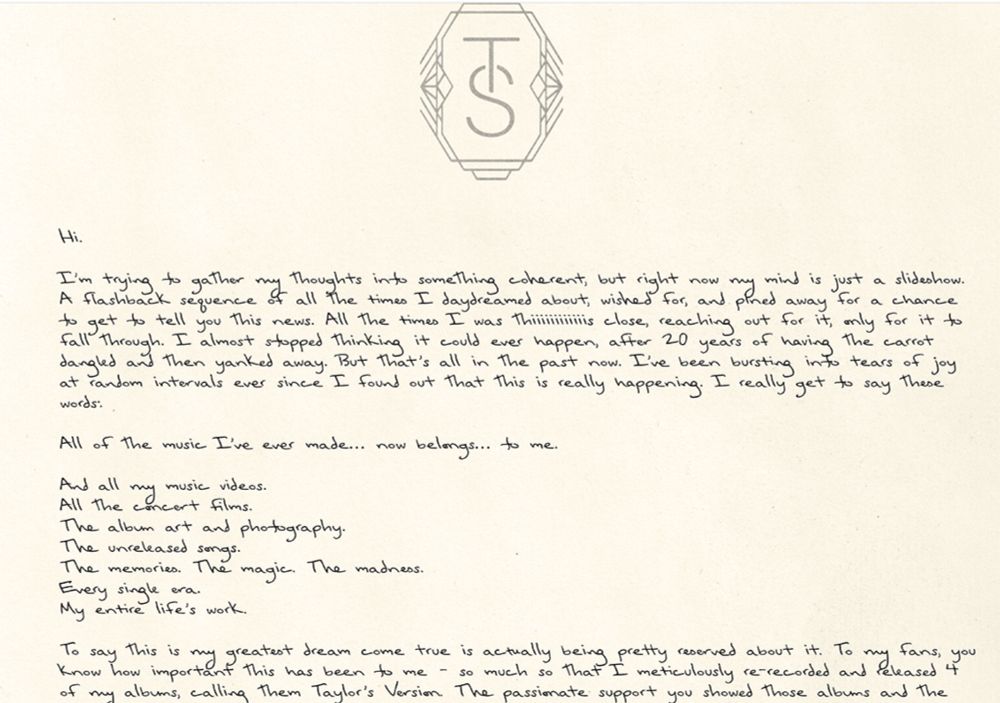 TS
Hi.
I'm trying to gather my thoughts into something coherent, but right now my mind is just a slideshow.
A flashback sequence of all the times I daydreamed about, wished for, and pined away for a chance
to get to tell you this news. All the times I was thiiiiiiiiiiiis close, reaching out for it, only for it to
fall through. I almost stopped thinking it could ever happen, after 20 years of having the carrot
dangled and then yanked away. But that's all in the past now. I've been bursting into tears of joy
at random intervals ever since I found out that this is really happening. I really get to say these
words:
All of the music I've ever made... now belongs... to me.
And all my music videos.
All the concert films.
The album art and photography.
The unreleased songs.
The memories. The magic. The madness.
Every single era.
My entire life's work.
To say this is my greatest dream come true is actually being pretty reserved about it. To my fans, you
know how important this has been to me - so much so that I meticulously re-recorded and released 4
of my albums, calling them Taylor's Version. The passionate support you showed those albums and the